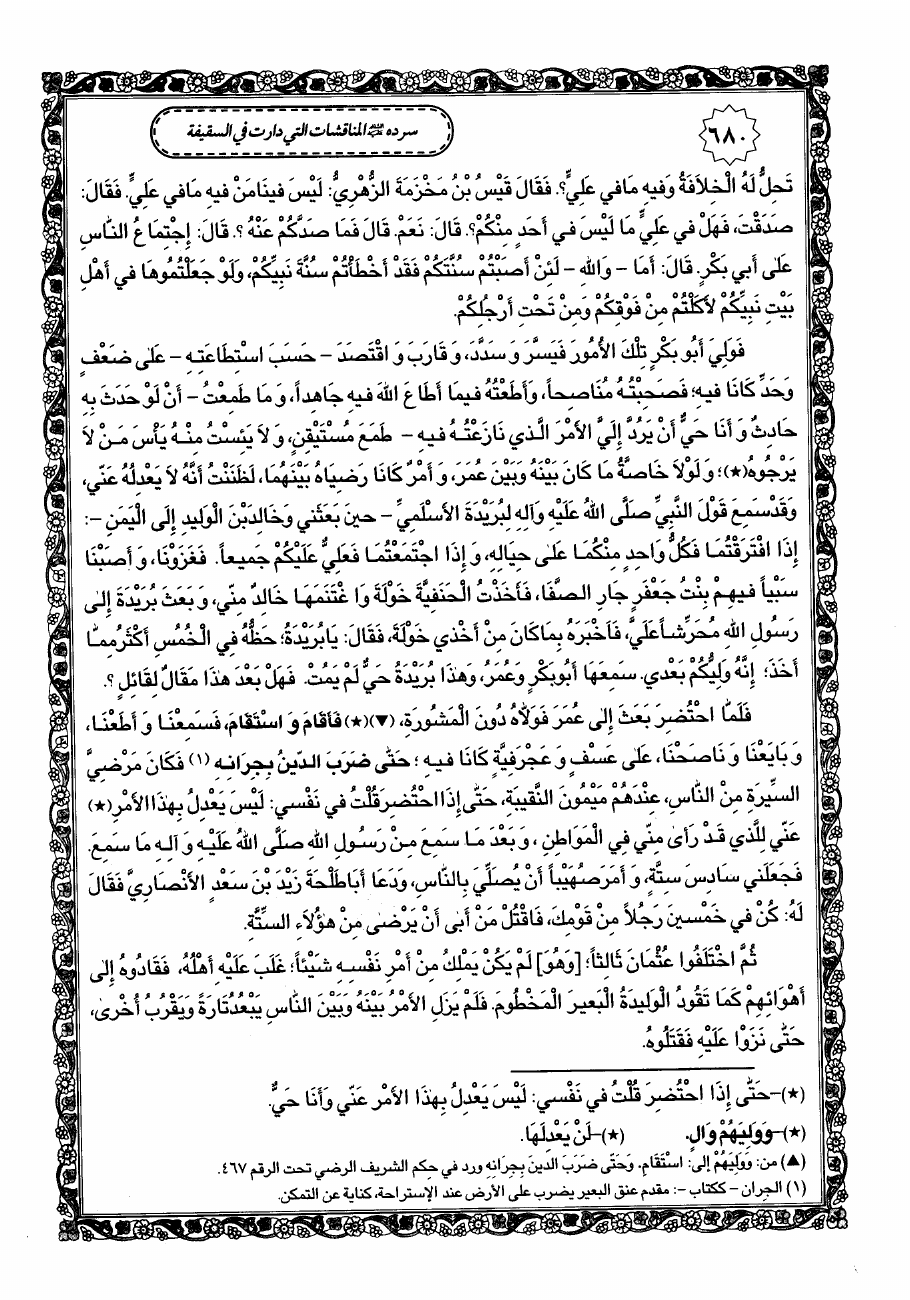 ٦٨٠
سرده ﷺ المناقشات التي دارت في السقيفة
تَحِلُّ لَهُ الْخِلاَفَةُ وَفيهِ مَا في عَلِيٍّ؟. فَقَالَ قَيْسُ بْنُ مَخْرَمَةَ الزُّهْرِيُّ: لَيْسَ فينَا مَنْ فيهِ مَا في عَلِيٍّ. فَقَالَ:
صَدَقْتَ، فَهَلْ في عَلِيٍّ مَا لَيْسَ في أَحَدٍ مِنْكُمْ؟. قَالَ: نَعَمْ. قَالَ فَمَا صَدَّكُمْ عَنْهُ؟. قَالَ: اِجْتِمَاعُ النَّاسِ
عَلى أَبي بَكْرٍ. قَالَ: أَمَا - وَاللهِ - لَئِنْ أَصَبْتُمْ سُنَّتَكُمْ فَقَدْ أَخْطَأْتُمْ سُنَّةَ نَبِيِّكُمْ، وَلَوْ جَعَلْتُمُوهَا في أَهْلِ
بَيْتِ نَبِيِّكُمْ لأَكَلْتُمْ مِنْ فَوْقِكُمْ وَمِنْ تَحْتِ أَرْجُلِكُمْ.
فَوَلِيَ أَبُو بَكْرٍ تِلْكَ الأُمُورَ فَيَسَّرَ وَ سَدَّدَ، وَ قَارَبَ وَ اقْتَصَدَ - حَسَبَ اسْتِطَاعَتِهِ - عَلى ضَعْفٍ
وَحَدٍّ كَانَا فيهِ؛ فَصَحِبْتُهُ مُنَاصِحاً، وَأَطَعْتُهُ فيمَا أَطَاعَ اللهَ فيهِ جَاهِداً، وَ مَا طَمِعْتُ - أَنْ لَوْ حَدَثَ بِهِ
حَادِثٌ وَ أَنَا حَيٌّ أَنْ يَرُدَّ إِلَيَّ الأَمْرَ الَّذي نَازَعْتُهُ فيهِ - طَمَعَ مُسْتَيْقِنٍ، وَ لاَ يَئِسْتُ مِنْهُ يَأْسَ مَنْ لاَ
يَرْجُوهُ(★)؛ وَ لَوْلاَ خَاصَّةُ مَا كَانَ بَيْنَهُ وَبَيْنَ عُمَرَ، وَ أَمْرٌ كَانَا رَضِيَاهُ بَيْنَهُمَا، لَظَنَنْتُ أَنَّهُ لاَ يَعْدِلُهُ عَنّي،
وَقَدْ سَمِعَ قَوْلَ النَّبِيِّ صَلَّى اللهُ عَلَيْهِ وَآلِهِ لِبُرَيْدَةَ الأَسْلَمِيِّ - حينَ بَعَثَني وَخَالِدَ بْنَ الْوَليدِ إِلَى الْيَمَنِ -:
إِذَا افْتَرَقْتُمَا فَكُلُّ وَاحِدٍ مِنْكُمَا عَلى حِيَالِهِ، وَ إِذَا اجْتَمَعْتُمَا فَعَلِيٌّ عَلَيْكُمْ جَميعاً. فَغَزَوْنَا، وَ أَصَبْنَا
سَبْياً فيهِمْ بِنْتُ جَعْفَرٍ جَارِ الصَّفَا، فَأَخَذْتُ الْحَنَفِيَّةَ خَوْلَةَ وَ اغْتَنَمَهَا خَالِدٌ مِنّي، وَ بَعَثَ بُرَيْدَةَ إِلى
رَسُولِ اللهِ مُحَرِّشاً عَلَيَّ، فَأَخْبَرَهُ بِمَا كَانَ مِنْ أَخْذي خَوْلَةَ، فَقَالَ: يَا بُرَيْدَةُ؛ حَظُّهُ فِي الْخُمُسِ أَكْثَرُ مِمَّا
أَخَذَ؛ إِنَّهُ وَلِيُّكُمْ بَعْدي. سَمِعَهَا أَبُو بَكْرٍ وَعُمَرُ، وَهذَا بُرَيْدَةُ حَيٌّ لَمْ يَمُتْ. فَهَلْ بَعْدَ هذَا مَقَالٌ لِقَائِلٍ؟.
فَلَمَّا احْتُضِرَ بَعَثَ إِلى عُمَرَ فَوَلاَّهُ دُونَ الْمَشُورَةِ، (▼)(★) فَأَقَامَ وَ اسْتَقَامَ، فَسَمِعْنَا وَ أَطَعْنَا،
وَ بَايَعْنَا وَ نَاصَحْنَا، عَلى عَسْفٍ وَ عَجْرَفِيَّةٍ كَانَا فيهِ؛ حَتّى ضَرَبَ الدّينُ بِجِرَانِهِ (١) فَكَانَ مَرْضِيَّ
السّيرَةِ مِنَ النَّاسِ، عِنْدَهُمْ مَيْمُونَ النَّقيبَةِ، حَتّى إِذَا احْتُضِرَ قُلْتُ في نَفْسي: لَيْسَ يَعْدِلُ بِهذَا الأَمْرِ(★)
عَنّي لِلَّذي قَدْ رَأى مِنّي فِي الْمَوَاطِنِ، وَ بَعْدَ مَا سَمِعَ مِنْ رَسُولِ اللهِ صَلَّى اللهُ عَلَيْهِ وَ آلِهِ مَا سَمِعَ.
فَجَعَلَني سَادِسَ سِتَّةٍ، وَ أَمَرَ صُهَيْباً أَنْ يُصَلِّيَ بِالنَّاسِ، وَدَعَا أَبَا طَلْحَةَ زَيْدَ بْنَ سَعْدٍ الأَنْصَارِيَّ فَقَالَ
لَهُ: كُنْ في خَمْسينَ رَجُلاً مِنْ قَوْمِكَ، فَاقْتُلْ مَنْ أَبى أَنْ يَرْضى مِنْ هؤُلاَءِ السِّتَّةِ.
ثُمَّ اخْتَلَفُوا عُثْمَانَ ثَالِثاً؛ [وَهُوَ] لَمْ يَكُنْ يَمْلِكُ مِنْ أَمْرِ نَفْسِهِ شَيْئاً؛ غَلَبَ عَلَيْهِ أَهْلُهُ، فَقَادُوهُ إِلى
أَهْوَائِهِمْ كَمَا تَقُودُ الْوَليدَةُ الْبَعيرَ الْمَخْطُومَ. فَلَمْ يَزَلِ الأَمْرُ بَيْنَهُ وَبَيْنَ النَّاسِ يَبْعُدُ تَارَةً وَيَقْرُبُ أُخْرى،
حَتّى نَزَوْا عَلَيْهِ فَقَتَلُوهُ.
(★)-حَتّى إِذَا احْتُضِرَ قُلْتُ في نَفْسي: لَيْسَ يَعْدِلُ بِهذَا الأَمْرِ عَنّي وَأَنَا حَيٌّ.
(★)-وَوَلِيَهُمْ وَالٍ. (★)-لَنْ يَعْدِلَهَا.
(▲) من: وَوَلِيَهُمْ إلى: اسْتَقَامَ. وَحَتّى ضَرَبَ الدينَ بِجِرَانِهِ ورد في حكم الشريف الرضي تحت الرقم ٤٦٧.
(١) الجران - ككتاب -: مقدم عنق البعير يضرب على الأرض عند الإستراحة، كناية عن التمكن.